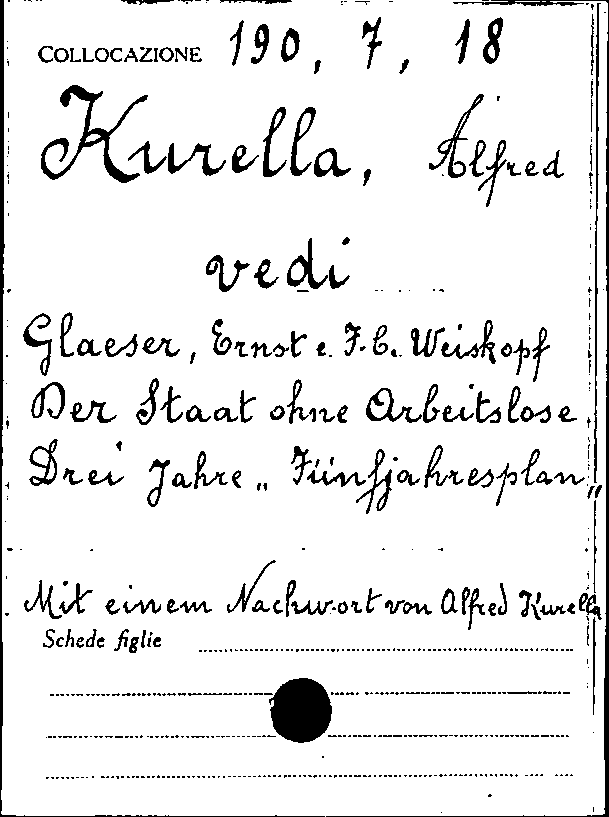 COLLOCAZIONE 190, 7, 18
Kurella, Alfred
vedi
Glaeser, Ernst e F.C. Weiskopf
Der Staat ohne Arbeitslose
Drei Jahre „Fünfjahresplan„
Mit einem Nachwort von Alfred Kurella
Schede figlie